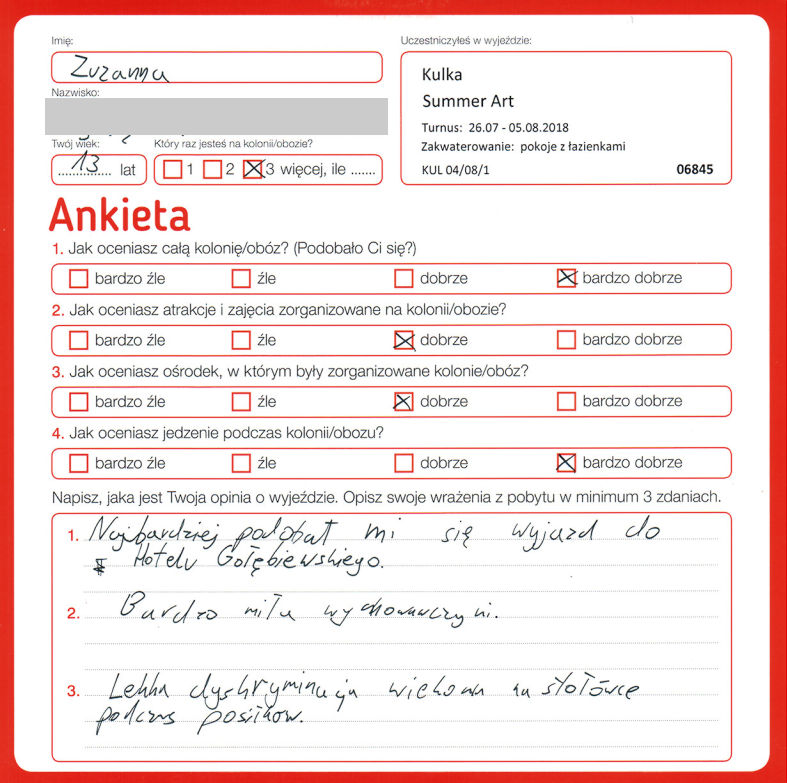 Imię:
Zuzanna
Nazwisko:
Twój wiek:
13 lat
Który raz jesteś na kolonii/obozie?
1 2 3 więcej, ile .......
Uczestniczyłeś w wyjeździe:
Kulka
Summer Art
Turnus: 26.07 - 05.08.2018
Zakwaterowanie: pokoje z łazienkami
KUL 04/08/1 06845
Ankieta
1. Jak oceniasz całą kolonię/obóz? (Podobało Ci się?)
bardzo źle źle dobrze bardzo dobrze
2. Jak oceniasz atrakcje i zajęcia zorganizowane na kolonii/obozie?
bardzo źle źle dobrze bardzo dobrze
3. Jak oceniasz ośrodek, w którym były zorganizowane kolonie/obóz?
bardzo źle źle dobrze bardzo dobrze
4. Jak oceniasz jedzenie podczas kolonii/obozu?
bardzo źle źle dobrze bardzo dobrze
Napisz, jaka jest Twoja opinia o wyjeździe. Opisz swoje wrażenia z pobytu w minimum 3 zdaniach.
1. Najbardziej podobał mi się wyjazd do
Hotelu Gołębiewskiego.
2. Bardzo miła wychowawczyni.
3. Lekka dyskryminacja wiekowa na stołówce
podczas posiłków.